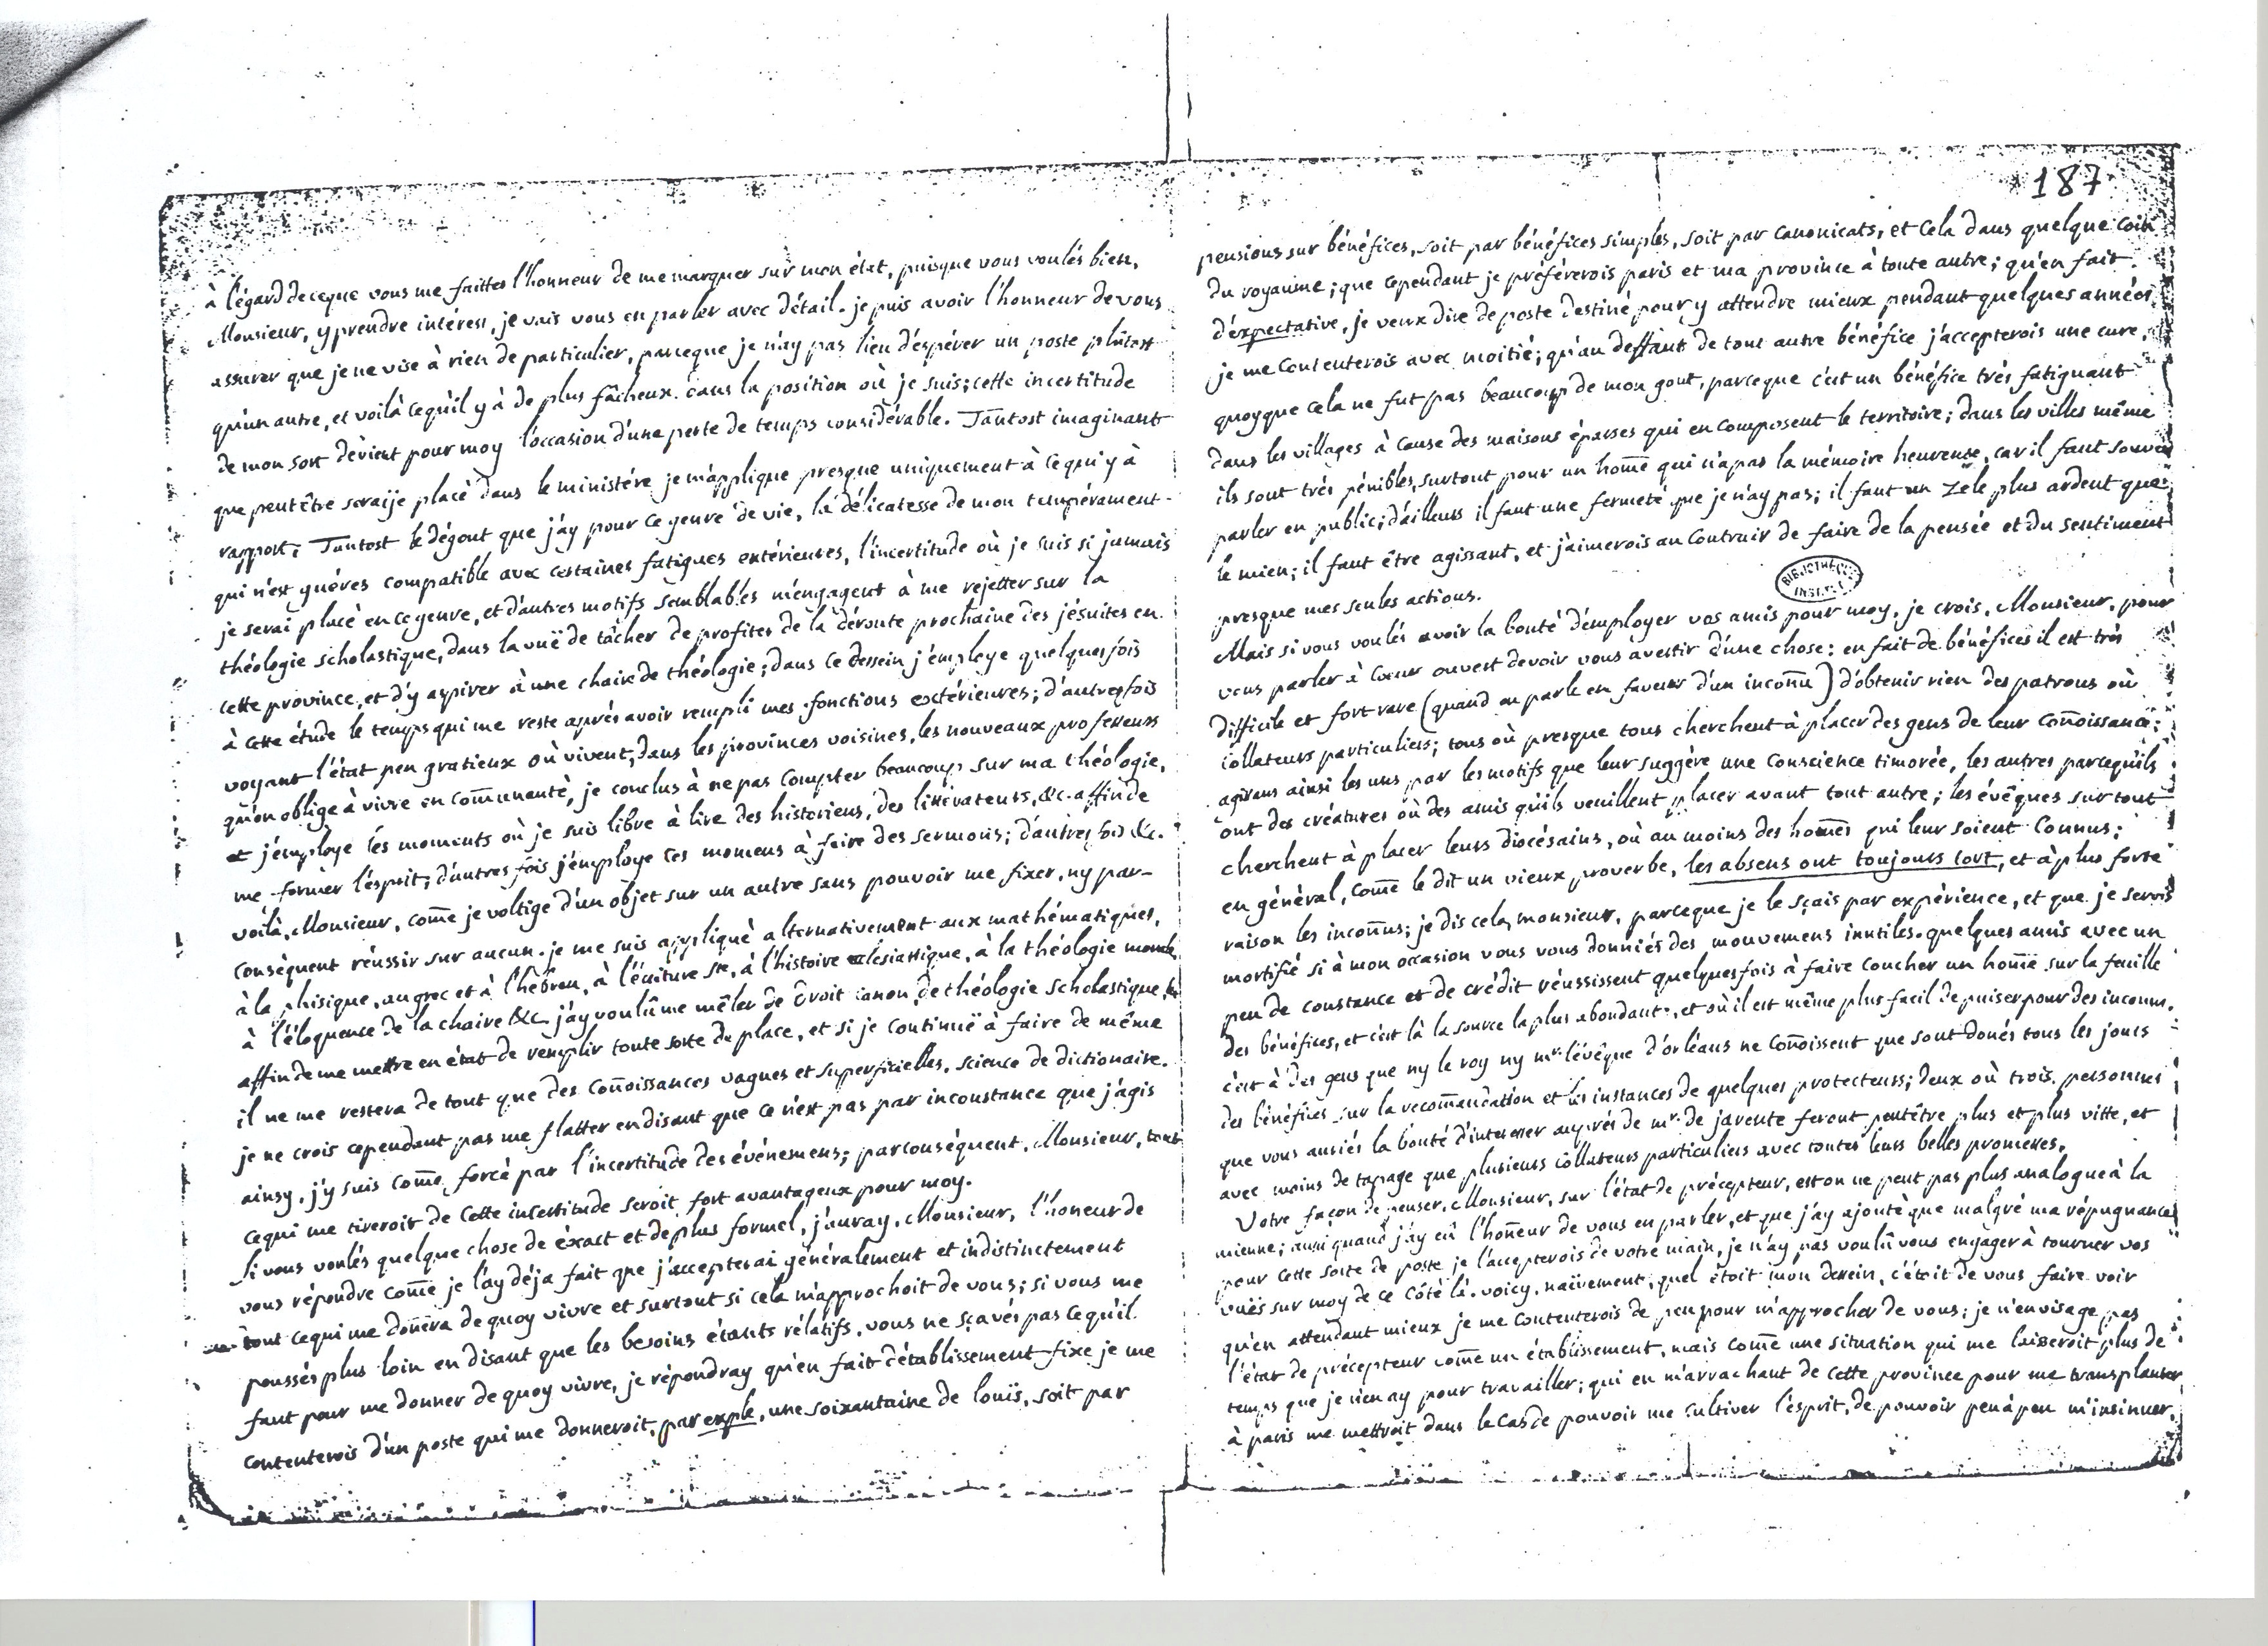 à l'égard de ceque vous me faittes l'honneur de me marquer sur mon état, puisque vous voulés bien,
Monsieur, y prendre intérest, je vais vous en parler avec détail. je puis avoir l'honneur de vous
assurer que je ne vise à rien de particulier, parceque je n'ay pas lieu d'éspérer un poste plûtost
qu'un autre, et voilà cequ'il y à de plus fâcheux dans la position où je suis; cette incertitude
de mon sort dévient pour moy l'occasion d'une perte de temps considérable. Tantost imaginant
que peutêtre seraije placé dans le ministére je m'applique presque uniquement à ce qui y à
rapport; Tantost le dégout que j'ay pour ce genre de vie, la délicatesse de mon tempérament
qui n'est guéres compatible avec certaines fatigues extérieures, l'incertitude où je suis si jamais
je serai placé en ce genre, et d'autres motifs semblables m'engagent à me rejetter sur la
théologie scholastique, dans la vuë de tâcher de profiter de la déroute prochaine des jésuites en
cette province, et d'y aspirer à une chaire de théologie; dans ce dessein j'employe quelquesfois
à cette étude le temps qui me reste aprés avoir rempli mes fonctions extérieures; d'autres fois
voyant l'état peu gratieux où vivent, dans les provinces voisines, les nouveaux professeurs
qu'on oblige à vivre en com̄unauté, je conclus à ne pas compter beaucoup sur ma théologie,
et j'employe les moments où je suis libre à lire des historiens, des littérateurs, &c. affin de
me former l'ésprit; d'autres fois j'employe ces momens à faire des sermons; d'autres fois &c.
voilà, Monsieur, com̄e je voltige d'un objet sur un autre sans pouvoir me fixer, ny par-
conséquent réussir sur aucun. je me suis appliqué alternativement aux mathématiques,
à la phisique, au grec et à l'hébreu, à l'écriture ste, à l'histoire eclésiastique, à la théologie morale,
à l'éloquence de la chaire &c. j'ay voulû me mêler de droit canon, de théologie scholastique
affin de me mettre en état de remplir toute sorte de place, et si je continuë à faire de même
il ne me restera de tout que des con̄oissances vagues et superficielles, science de dictionaire.
je ne crois cependant pas me flatter en disant que ce n'est pas par inconstance que j'agis
ainsy, j'y suis com̄e forcé par l'incertitude des événemens; parconséquent, Monsieur, tout
cequi me tireroit de cette incertitude seroit fort avantageux pour moy.
Si vous voulés quelque chose de éxact et de plus formel, j'auray, Monsieur, l'honeur de
vous répondre com̄e je l'ay déja fait que j'accepterai généralement et indistinctement
tout cequi me don̄era de quoy vivre et surtout si cela m'approchoit de vous; si vous me
poussés plus loin en disant que les besoins étants rélatifs, vous ne sçavés pas cequ'il
faut pour me donner de quoy vivre, je répondray qu'en fait d'établissement fixe je me
contenterois d'un poste qui me donneroit, par exple, une soixantaine de louïs, soit par
187
pensions sur bénéfices, soit par bénéfices simples, soit par canonicats, et cela dans quelque coin
du royaume; que cependant je préférerois paris et ma province à toute autre; qu'en fait
d'éxpectative, je veux dire de poste destiné pour y attendre mieux pendant quelques années
je me contenterois avec moitié; qu'au deffaut de tout autre bénéfice j'accepterois une cure,
quoyque cela ne fut pas beaucoup de mon gout, parceque c'est un bénéfice trés fatiguant
dans les villages à cause des maisons éparses qui en composent le territoire; dans les villes même
ils sont trés pénibles, surtout pour un hom̄e qui n'a pas la mémoire heureuse, car il faut souvent
parler en public; d'ailleurs il faut une fermeté que je n'ay pas; il faut un zéle plus ardent que
le mien; il faut être agissant, et j'aimerois au contrair de faire de la pensée et du sentiment
presque mes seules actions.
BIBLIOTHÈQUE
Mais si vous voulés avoir la bonté d'employer vos amis pour moy, je crois, Monsieur, pour
vous parler à coeur ouvert devoir vous avertir d'une chose: en fait de bénéfices il est trés
difficile et fort rare (quand on parle en faveur d'un incon̄u) d'obtenir rien des patrons où
collateurs particuliers; tous où presque tous cherchent à placer des gens de leur con̄oissance;
agissans ainsi les uns par les motifs que leur suggère une conscience timorée, les autres parcequ'ils
ont des créatures où des amis qu'ils veuillent placer avant tout autre; les évêques surtout
cherchent à placer leurs diocésains, où au moins des hom̄es qui leur soient connus;
en général, com̄e le dit un vieux proverbe, les absens ont toujours tort, et à plus forte
raison les incon̄us; je dis cela, monsieur, parceque je le sçais par expérience, et que je serois
mortifié si à mon occasion vous vous donniés des mouvemens inutiles. quelques amis avec un
peu de constance et de crédit réussissent quelquesfois à faire coucher un hom̄e sur la feuille
des bénéfices, et c'est là la source la plus abondant, et où il est même plus facil de puiser pour des inconnu.
c'est à des gens que ny le roy ny mr. l'évêque d'orléans ne con̄oissent que sont donés tous les jours
des bénéfices sur la recom̄andation et les instances de quelques protecteurs; deux où trois personnes
que vous auriés la bonté d'interesser auprés de mr. de jarente feront peutêtre plus et plus vitte, et
avec moins de tapage que plusieurs collateurs particuliers avec toutes leurs belles promesses.
Votre façon de penser, Monsieur, sur l'état de précepteur, est on ne peut pas plus analogue à la
mienne; aussi quand j'ay eû l'hon̄eur de vous en parler, et que j'ay ajouté que malgré ma répugnance
pour cette sorte de poste je l'accepterois de votre main, je n'ay pas voulû vous engager à tourner vos
vuës sur moy de ce côté là. voicy, naïvement, quel étoit mon dessein, c'étoit de vous faire voir
qu'en attendant mieux je me contenterois de peu pour m'approcher de vous; je n'envisage pas
l'état de précepteur com̄e un établissement, mais com̄e une situation qui me laisseroit plus de
temps que je n'en ay pour travailler; qui en m'arrachant de cette province pour me transplanter
à paris me mettroit dans le cas de pouvoir me cultiver l'ésprit, de pouvoir peu à peu m'insinuer,